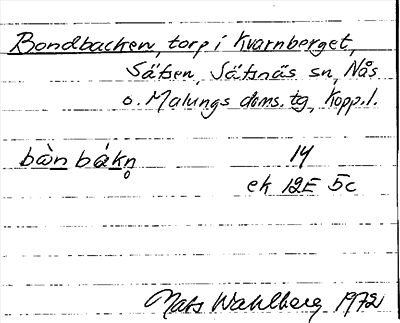 Bondbacken, torp i Kvarnberget,
Säfsen, Säfsnäs sn, Nås
o. Malungs doms. tg, Kopp. l.
bàn bákn̥ 14
ek 12E 5c
Mats Wahlberg 1972